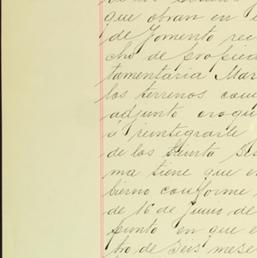 que obran en
de Fomento rec
cho de propied
tamentaria Mar
los terrenos com
adjunto croqui
á reintegrarle
de los treinta
ma tiene que
bierno conforme
de 16 de Junio de
punto en que e
cho de seis mese